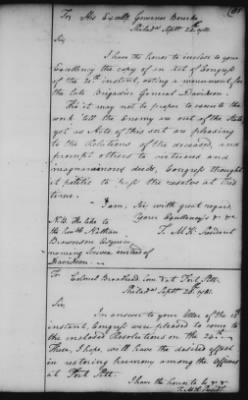 To His Excelly Governor Burke
Philada Septr 24. 1781.
Sir,
I have the honor to inclose to your
Excellency the copy of an Act of Congress
of the 20th instant, voting a monument for
the late Brigadier General Davidson.
tho it may not be proper to execute the
work 'till the Enemy are out of the State
yet as Acts of this sort are pleasing
to the Relations of the deceased, and
prompt others to virtuous and
magnanimous deeds, Congress thought
it politic to pass the resolve at this
time.
I am, Sir, with great regard
Your Excellency's &c &c
T. M.K. President
N.B. The like to
the honble Nathan
Brownson Esquire
naming instead of
Davidson.
To Colonel Brodhead Com at Fort Pitt.
Philada Septr 24. 1781.
Sir,
In answer to your letter of the
instant, Congress were pleased to come to
the enclosed Resolutions on the 24th
These, I hope, will have the desired effect
in restoring harmony among the officers
at Fort Pitt.
I have the honor to be &c
T. M.K. Presidt